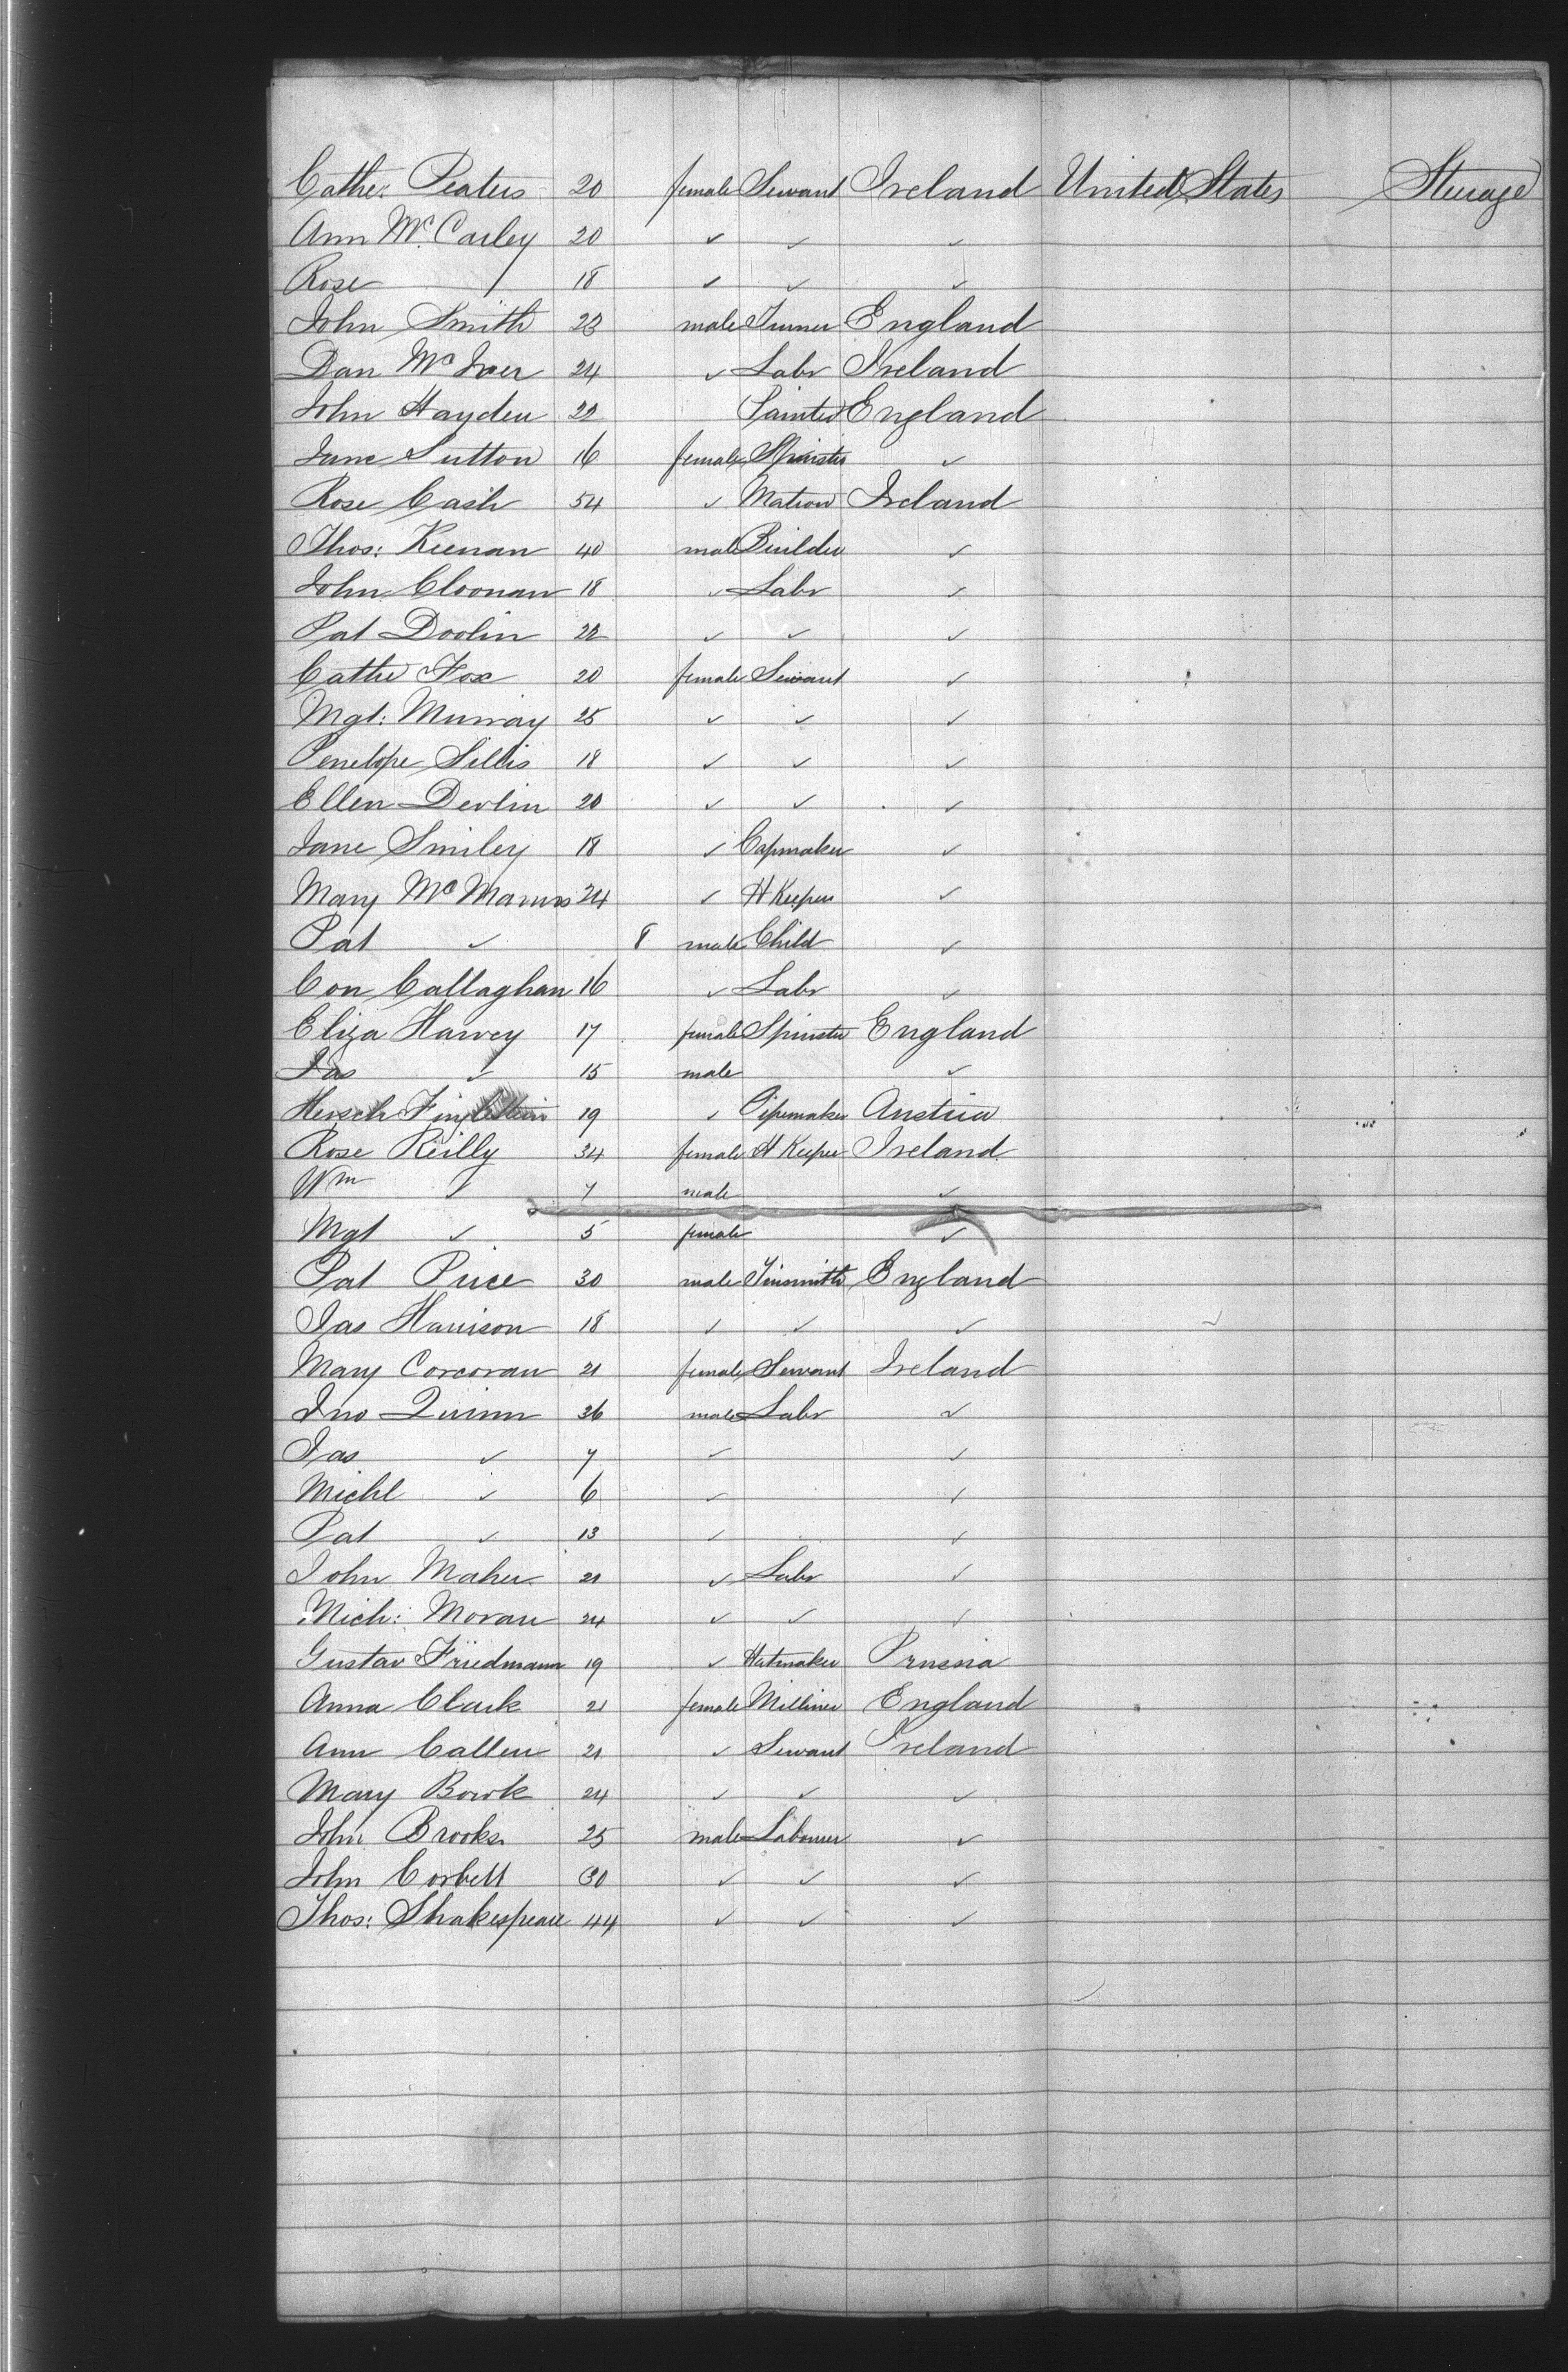 Cathe: Peaters 20 female Servant Ireland United States Steerage
Ann Mc. Carley 20 ✓ ✓ ✓
Rose / 18 ✓ ✓ ✓
John Smith 23 male Turner England
Dan Mc Iver 24 ✓ Labr Ireland
John Hayden 22 Painter England
Jane Sutton 16 female Spinster ✓
Rose Cash 54 ✓ Matron Ireland
Thos: Keenan 40 male Builder ✓
John Cloonan 18 ✓ Labr ✓
Pat Doolin 22 ✓ ✓ ✓
Cathe Fox 20 female Servant ✓
Mgt: Murray 25 ✓ ✓ ✓
Penelope Sillis 18 ✓ ✓ ✓
Ellen Devlin 20 ✓ ✓ ✓
Jane Smiley 18 ✓ Capmaker ✓
Mary Mc Manus 24 ✓ H Keeper ✓
Pat ✓ 8 male Child ✓
Con Callaghan 16 ✓ Labr ✓
Eliza Harvey 17 female Spinster England
Jas ✓ 15 male ✓
Hersch 19 ✓ Pipemaker Austria
Rose Reilly 34 female H Keeper Ireland
Wm ✓ 7 male ✓
Mgt ✓ 5 female ✓
Pat Price 30 male Tinsmith England
Jas Harrison 18 ✓ ✓ ✓
Mary Corcoran 21 female Servant Ireland
Jno Quinn 36 male Labr ✓
Jas ✓ 7 ✓ ✓
Michl ✓ 6 ✓ ✓
Pat ✓ 13 ✓ ✓
John Maher 21 ✓ Labr ✓
Mich: Moran 24 ✓ ✓ ✓
Gustav Friedmann 19 ✓ Hatmaker Prussia
Anna Clark 21 female Milliner England
Ann Callen 21 ✓ Servant Ireland
Mary Bowk 24 ✓ ✓ ✓
John Brooks 25 male Labourer ✓
John Corbett 30 ✓ ✓ ✓
Thos: Shakespeare 44 ✓ ✓ ✓